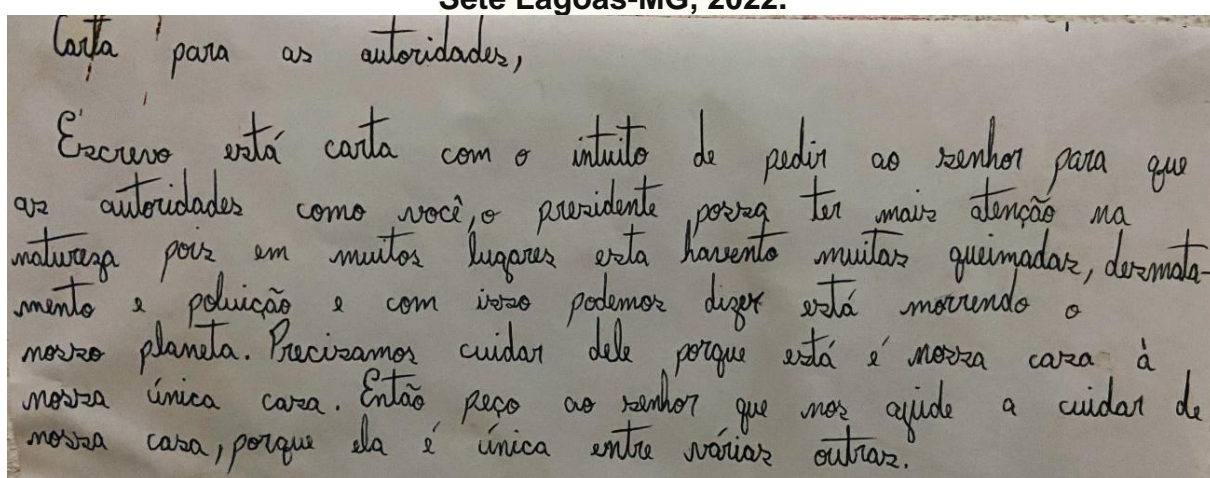 Sete Lagoas-MG, 2022.
Carta para as autoridades,
Escrevo está carta com o intuito de pedir ao senhor para que
as autoridades como você, o presidente possa ter mais atenção na
natureza pois em muitos lugares esta havento muitas queimadas, desmata-
mento e poluição e com isso podemos dizer está morrendo o
nosso planeta. Precisamos cuidar dele porque está é nossa casa à
nossa única casa. Então peço ao senhor que nos ajude a cuidar de
nossa casa, porque ela é única entre várias outras.